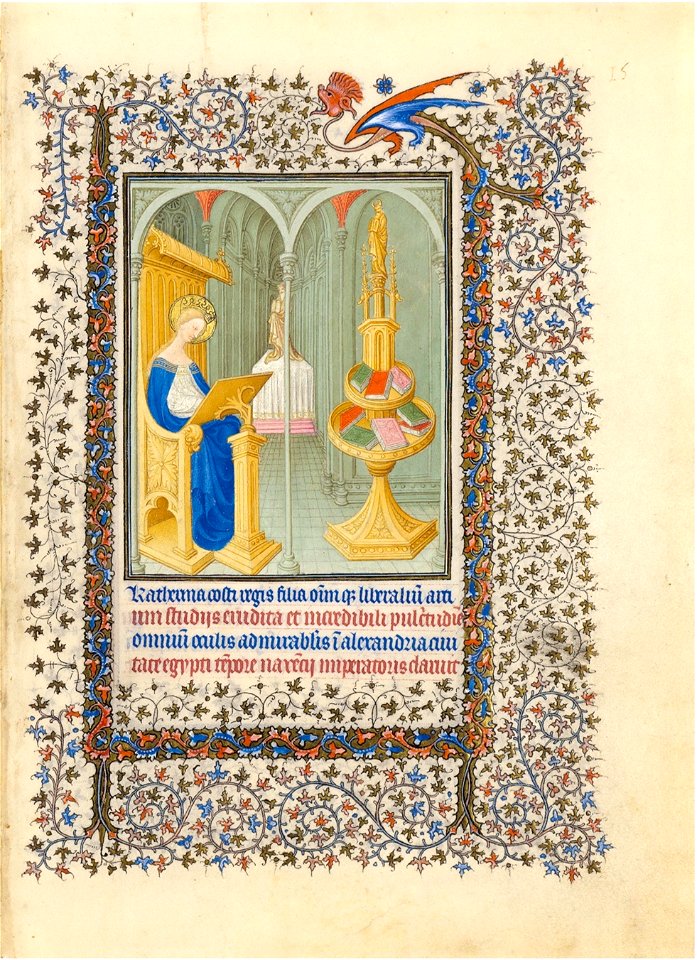 15
Katherina costi regis filia oīm qȝ liberaliū arti
um studijs erudita et incredibili pulcritudīe
omniū oculis admirabilis ī alexandria ciui
tate egypti tēpore maxēcij imperatoris claruit